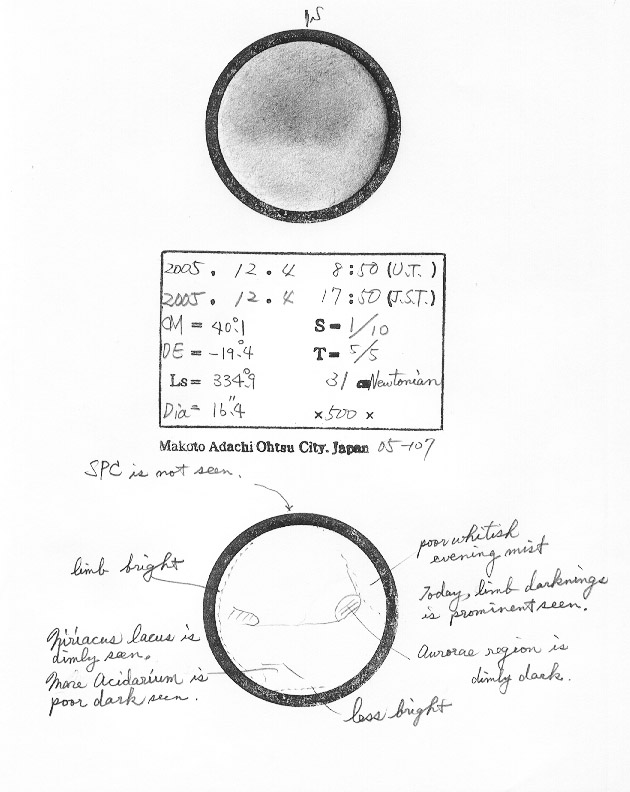 S
2005. 12. 4 8:50 (U.T.)
2005. 12. 4 17:50 (J.S.T.)
CM = 40°.1 S = 1/10
DE = -19°.4 T = 5/5
Ls = 334°.9 31 Newtonian
Dia = 16".4 ×500 ×
Makoto Adachi Ohtsu City. Japan 05-107
SPC is not seen.
limb bright
poor whitish
evening mist
Today, limb darknings
is prominent seen.
Niriacus lacus is
dimly seen.
Mare Acidarium is
poor dark seen.
Aurorae region is
dimly dark.
less bright